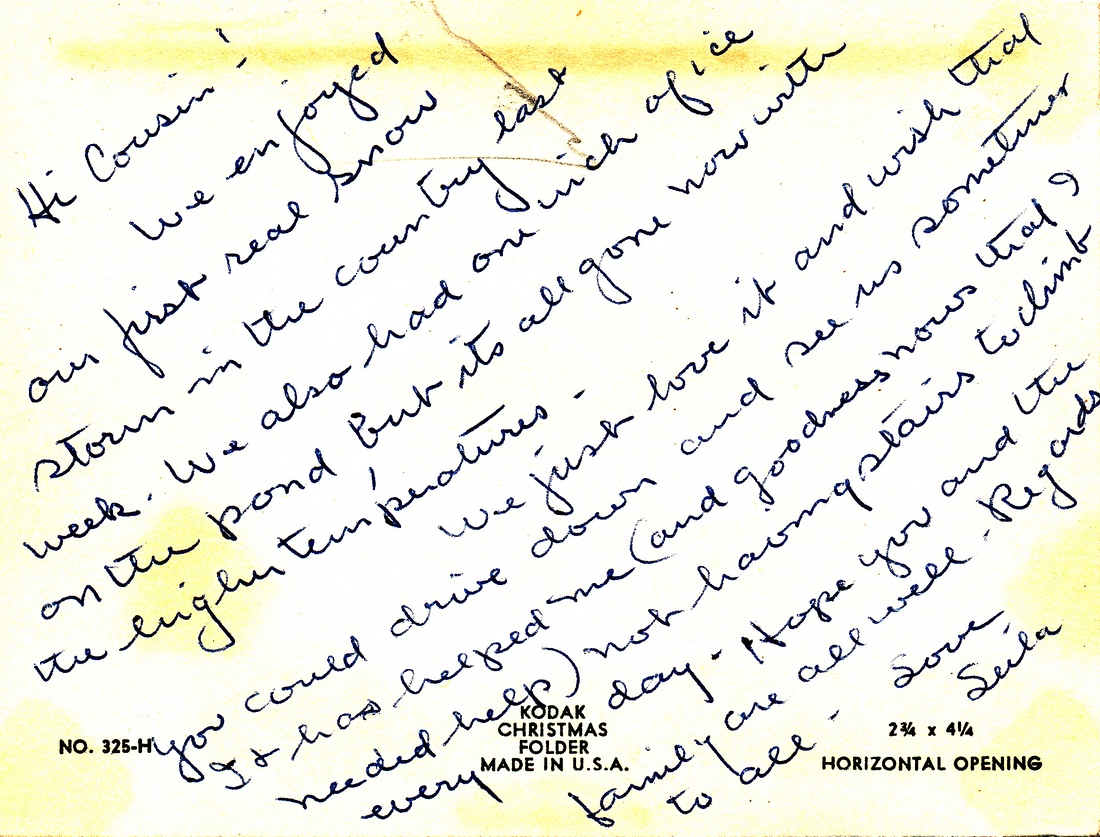 Hi Cousin!
We enjoyed
our first real snow
storm in the country last
week. We also had one inch of ice
on the pond but its all gone now with
the higher temperatures.
We just love it and wish that
you could drive down and see us sometimes
It has helped me (and goodness nows that I
needed help) not having stairs to climb
every day. Hope you and the
family are all well - Regards
to all - Love
NO. 325-H
KODAK
CHRISTMAS
FOLDER
MADE IN U.S.A.
2¾ x 4¼
HORIZONTAL OPENING